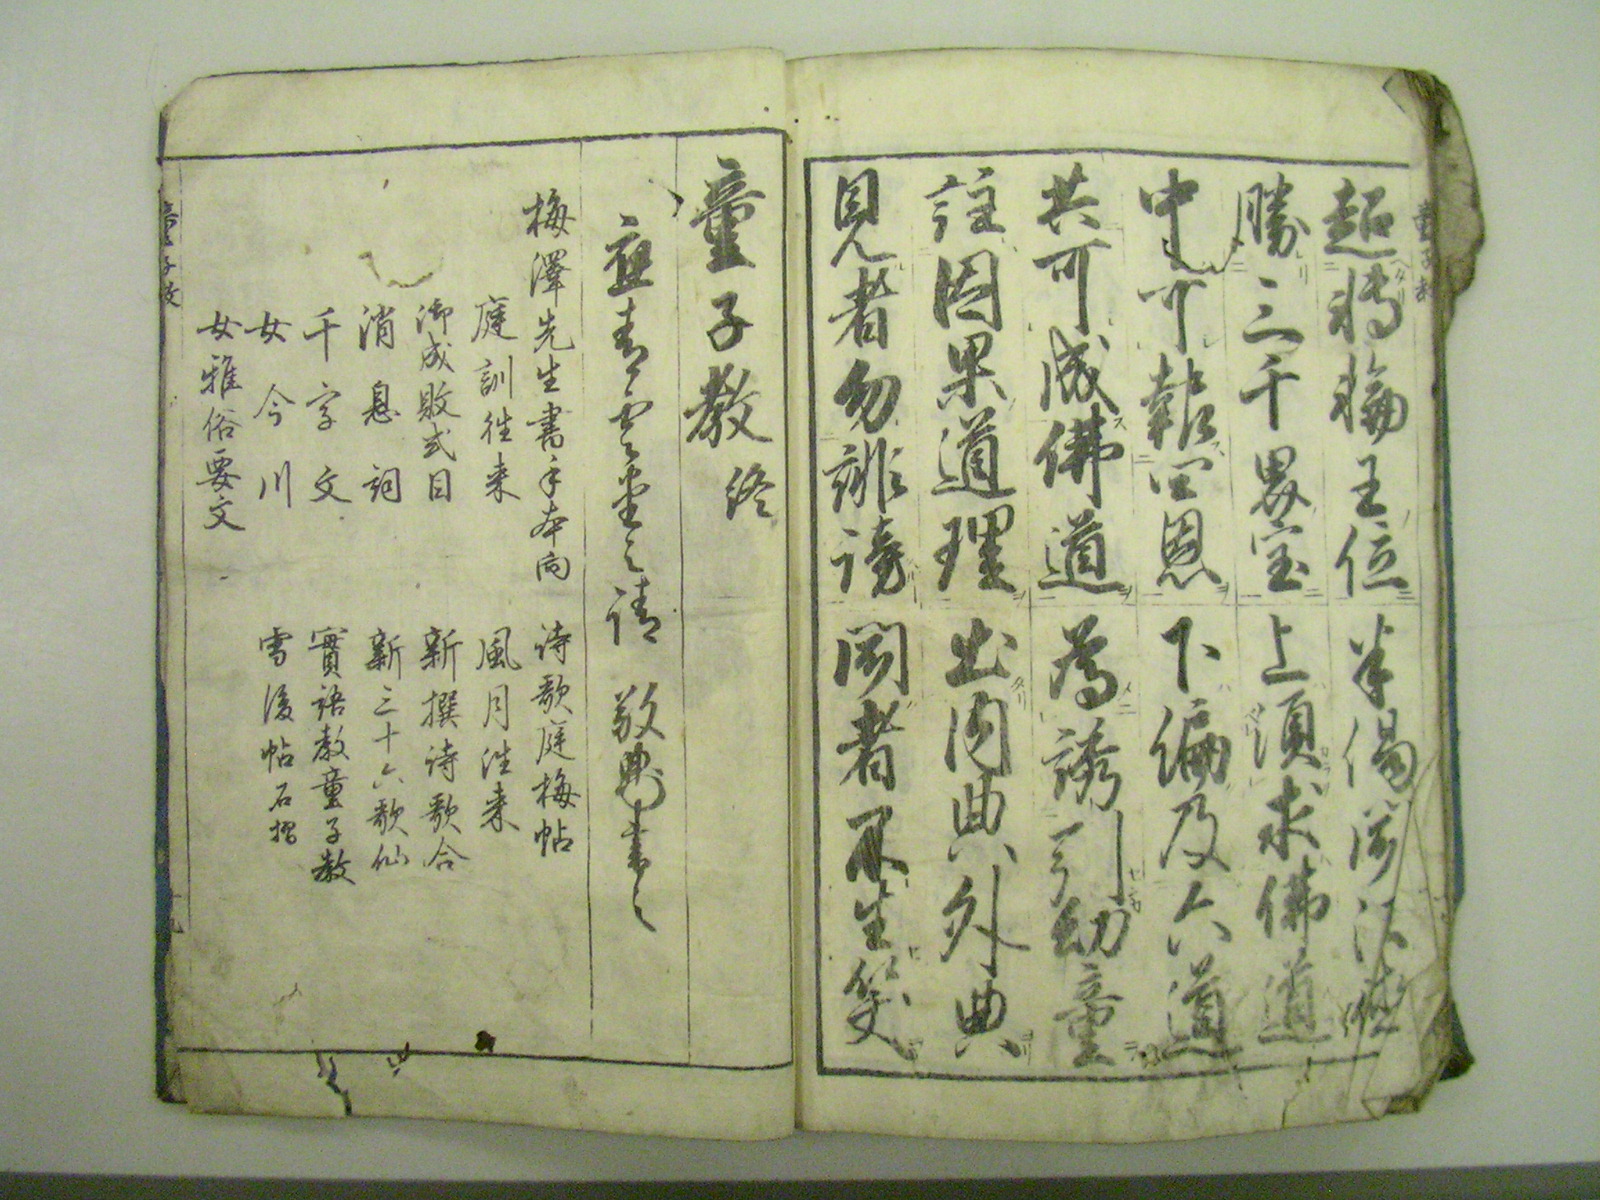 超轉輪王位 半偈勝法壊
勝三千界宝 上須求佛道
中可報四恩 下編及六道
共可成佛道 為誘引幼童
註因果道理 出内典外典
見者勿誹謗 聞者不生笑
童子教終
應青雲堂之請 敬典書之
梅澤先生書手本向
庭訓往来
御成敗式目
消息詞
千字文
女今川
女雅俗要文
詩歌庭梅帖
風月往来
新撰詩歌合
新三十六歌仙
實語教童子教
雪後帖石摺
童子教